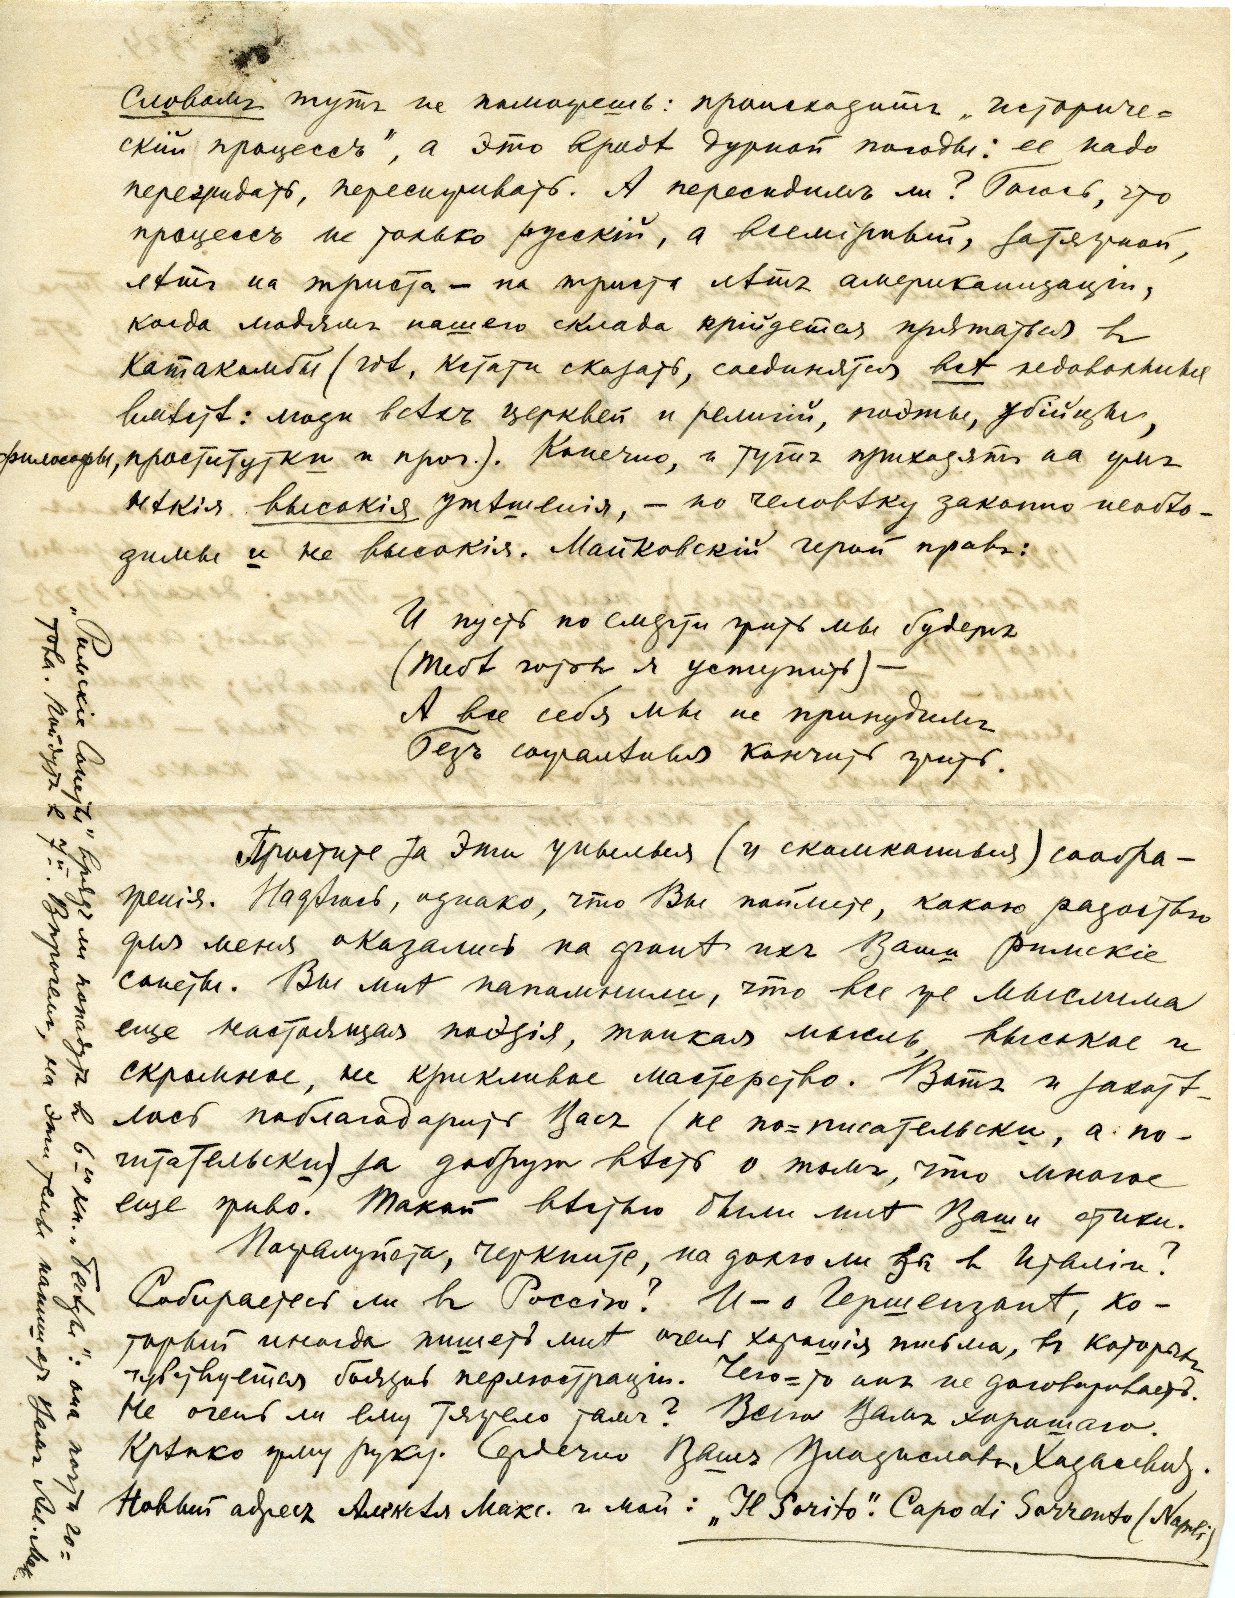 Словомъ тутъ не поможешь: происходитъ „историче=
скій процессъ", а это вродѣ дурной погоды: ее надо
пережидать, пересиживать. А пересидимъ ли? Боюсь, что
процессъ не только русскій, а всемірный, затяжной,
лѣтъ на триста — на триста лѣтъ американизаціи,
когда людямъ нашего склада прійдется прятаться въ
катакомбы (гдѣ, кстати сказать, соединятся всѣ недовольные
вмѣстѣ: люди всѣхъ церквей и религій, поэты, убійцы,
философы, проститутки и проч.). Конечно, и тутъ приходятъ на умъ
нѣкія высокія утѣшенія, — но человѣку законно необхо-
димы и не высокія. Майковскій герой правъ:
И пусть по смерти жить мы будемъ
(Тебѣ готовъ я уступить) —
А все себя мы не принудимъ
Безъ сожалѣнья кончить жить.
Простите за эти унылыя (и скомканныя) сообра-
женія. Надѣюсь, однако, что Вы поймете, какою радостью
для меня оказались на фонѣ ихъ Ваши Римскіе
сонеты. Вы мнѣ напомнили, что все же мыслима
еще настоящая поэзія, тонкая мысль, высокое и
скромное, не крикливое мастерство. Вотъ и захотѣ-
лось поблагодарить Васъ (не по=писательски, а по-
читательски) за добрую вѣсть о томъ, что многое
еще живо. Такой вѣстью были мнѣ Ваши стихи.
Пожалуйста, черкните, на долго ли Вы въ Италіи?
Собираетесь ли въ Россію? И — о Гершензонѣ, ко-
торый иногда пишетъ мнѣ очень хорошія письма, въ которыхъ
чувствуется боязнь перлюстраціи. Чего=то онъ не договариваетъ.
Не очень ли ему тяжело тамъ? Всего Вамъ хорошаго.
Крѣпко жму руку. Сердечно Вашъ Владиславъ Ходасевичъ.
Новый адресъ Алексѣя Макс. и мой: „Il Sorito". Capo di Sorrento (Napoli)
„Римскіе Сонеты" врядъ ли попадутъ въ 6-ю кн. „Бесѣды": она почти го=
това. Пойдутъ въ 7-й. Впрочемъ, на эти темы напишетъ Вамъ Ал. Мак.